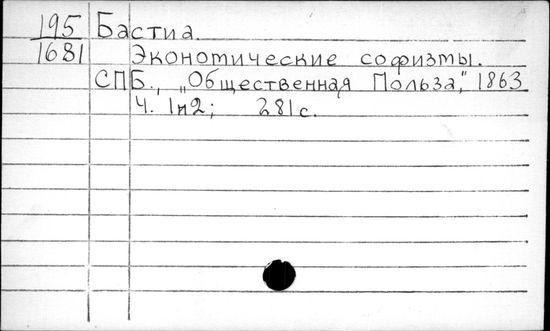 195 Бастиа.
1681 Экономические софизмы.
СПБ., „Общественная Польза," 1863
Ч. 1и2; 281с.